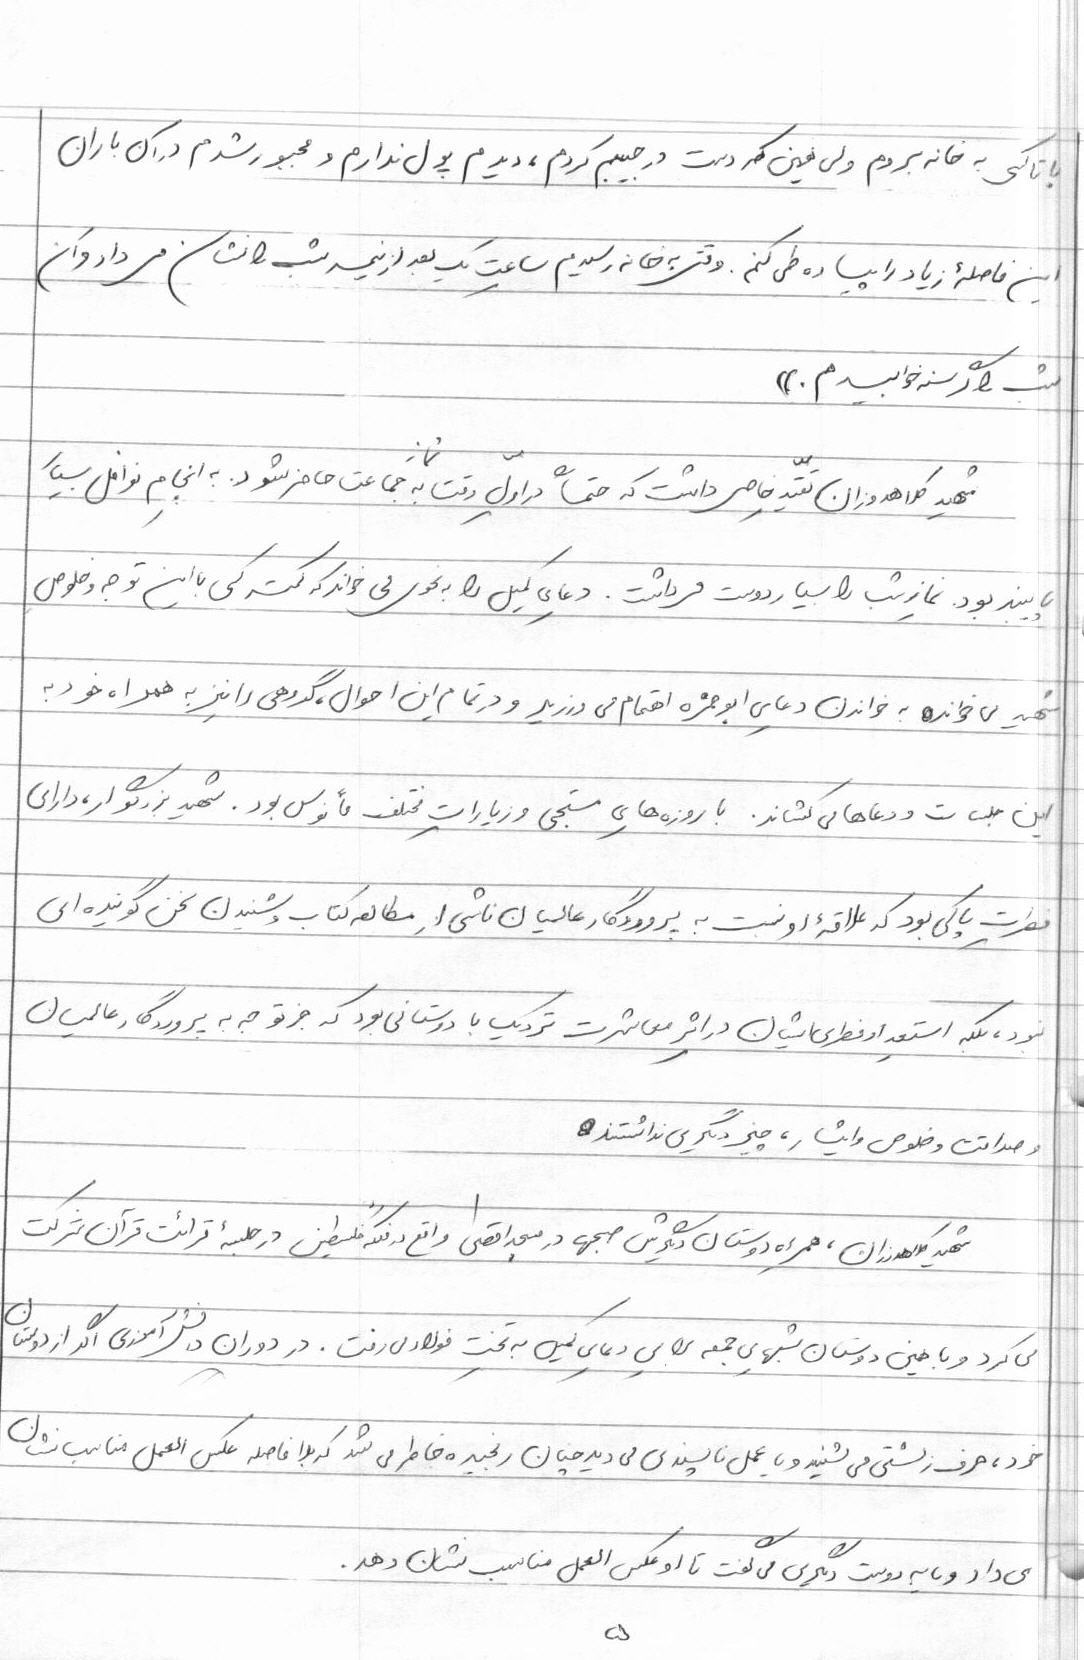 با تاکسی به خانه بروم ولی همین که دست در جیبم کردم، دیدم پول ندارم و مجبور شدم در آن باران
این فاصلهٔ زیاد را پیاده طی کنم. وقتی به خانه رسیدم ساعت یک بعد از نیمه شب را نشان می داد و آن
شب را گرسنه خوابیدم.»
شهید کلاهدوزان تقیّد خاصی داشت که حتماً در اوّل وقت به نماز جماعت حاضر شود. به انجام نوافل بسیار
پایبند بود. نماز شب را بسیار دوست می داشت. دعای کمیل را به نحوی می خواند که کمتر کسی با این توجه و خلوص
شهید می خواند. به خواندن دعای ابوحمزه اهتمام می ورزید و در تمام این احوال، گروهی را نیز به همراه خود به
این جلسات و دعاها می کشاند. با روزه های مستحبی و زیارات مختلف مأنوس بود. شهید بزرگوار، دارای
فطرت پاکی بود که علاقهٔ او نسبت به پروردگار عالمیان ناشی از مطالعه کتاب و شنیدن سخن گوینده ای
نبود، بلکه استعداد فطری ایشان در اثر معاشرت نزدیک با دوستانی بود که جز توجه به پروردگار عالمیان
و صداقت و خلوص و ایثار، چیز دیگری نداشتند.
شهید کلاهدوزان، همراه دوستان دیگرش صبحها در مسجد اقصی واقع در فلکه فلسطین در جلسهٔ قرائت قرآن شرکت
می کرد و با همین دوستان شبهای جمعه برای دعای کمیل به تخت فولاد می رفت. در دوران دانش آموزی اگر از دوستان
خود، حرف زشتی می شنید و یا عمل ناپسندی می دید چنان رنجیده خاطر می شد که بلافاصله عکس العمل مناسب نشان
می داد و یا به دوست دیگری می گفت تا او عکس العمل مناسب نشان دهد.
۵